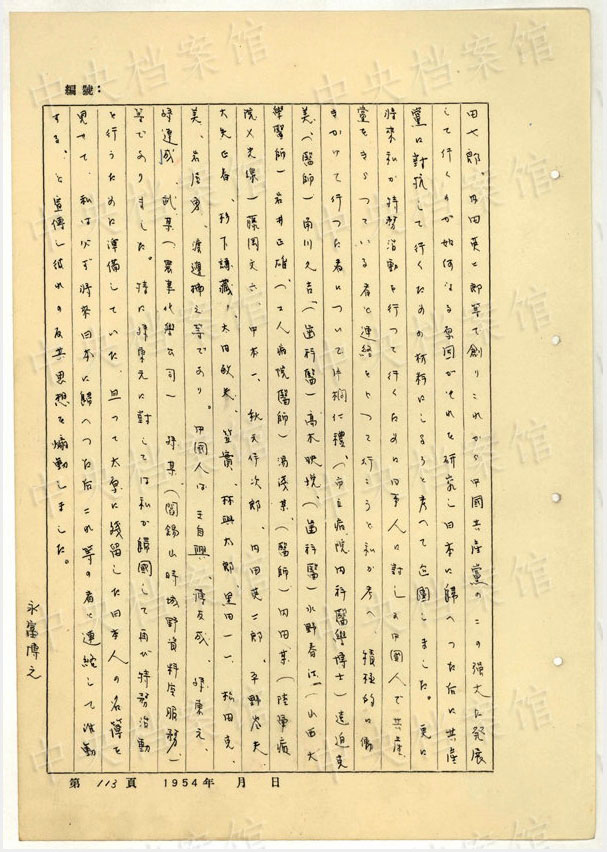 編號：
田七郎。内田英二郎等で創りこれから中國共産黨のこの強大に發展
して行くのが如何なる原因かそれを研究し日本に歸へつた后に共産
黨に對抗して行くための材料にしようと考へて企圖しました。更に
将來私が特務活動を行つて行くために日本人に對し又中國人で共産
黨をきらつている者と連絡をとつて行こうと私が考へ、積極的に働
きかけて行つた者については桐仁禮、（市立病院内科醫學博士）遠迫克
美（醫師）角川久吉、（歯科醫）髙木 （歯科醫）水野春 （山西大
學醫師）岩井正雄、（工人病院醫師）湯淺某、（醫師）内田某（陸軍病
院X光線）藤岡文六、中本一、秋元伊次郎、内田英二郎、平野 夫、
大矢正春、杉下 藏、太田政夫、笠實、林與太郎、里田一一、松田克
美、岩屋勇、渡邊 之等であり。中國人は王自興、薄友成、 東元、
 連成、武某（農業化學公司） 某（閻錫山時城野資料 服務）
等でありました。特に 東元に對しては私が歸國して再び特務活動
を行うために準備していた、且つて太原に殘留した日本人の名簿を
見せて、私は必ず将來日本に歸へつた后これ等の者と連絡して活動
する、と宣傳し彼れの反共思想を煽動しました。
永富博之
第 113 頁 1954年 月 日
中央档案馆